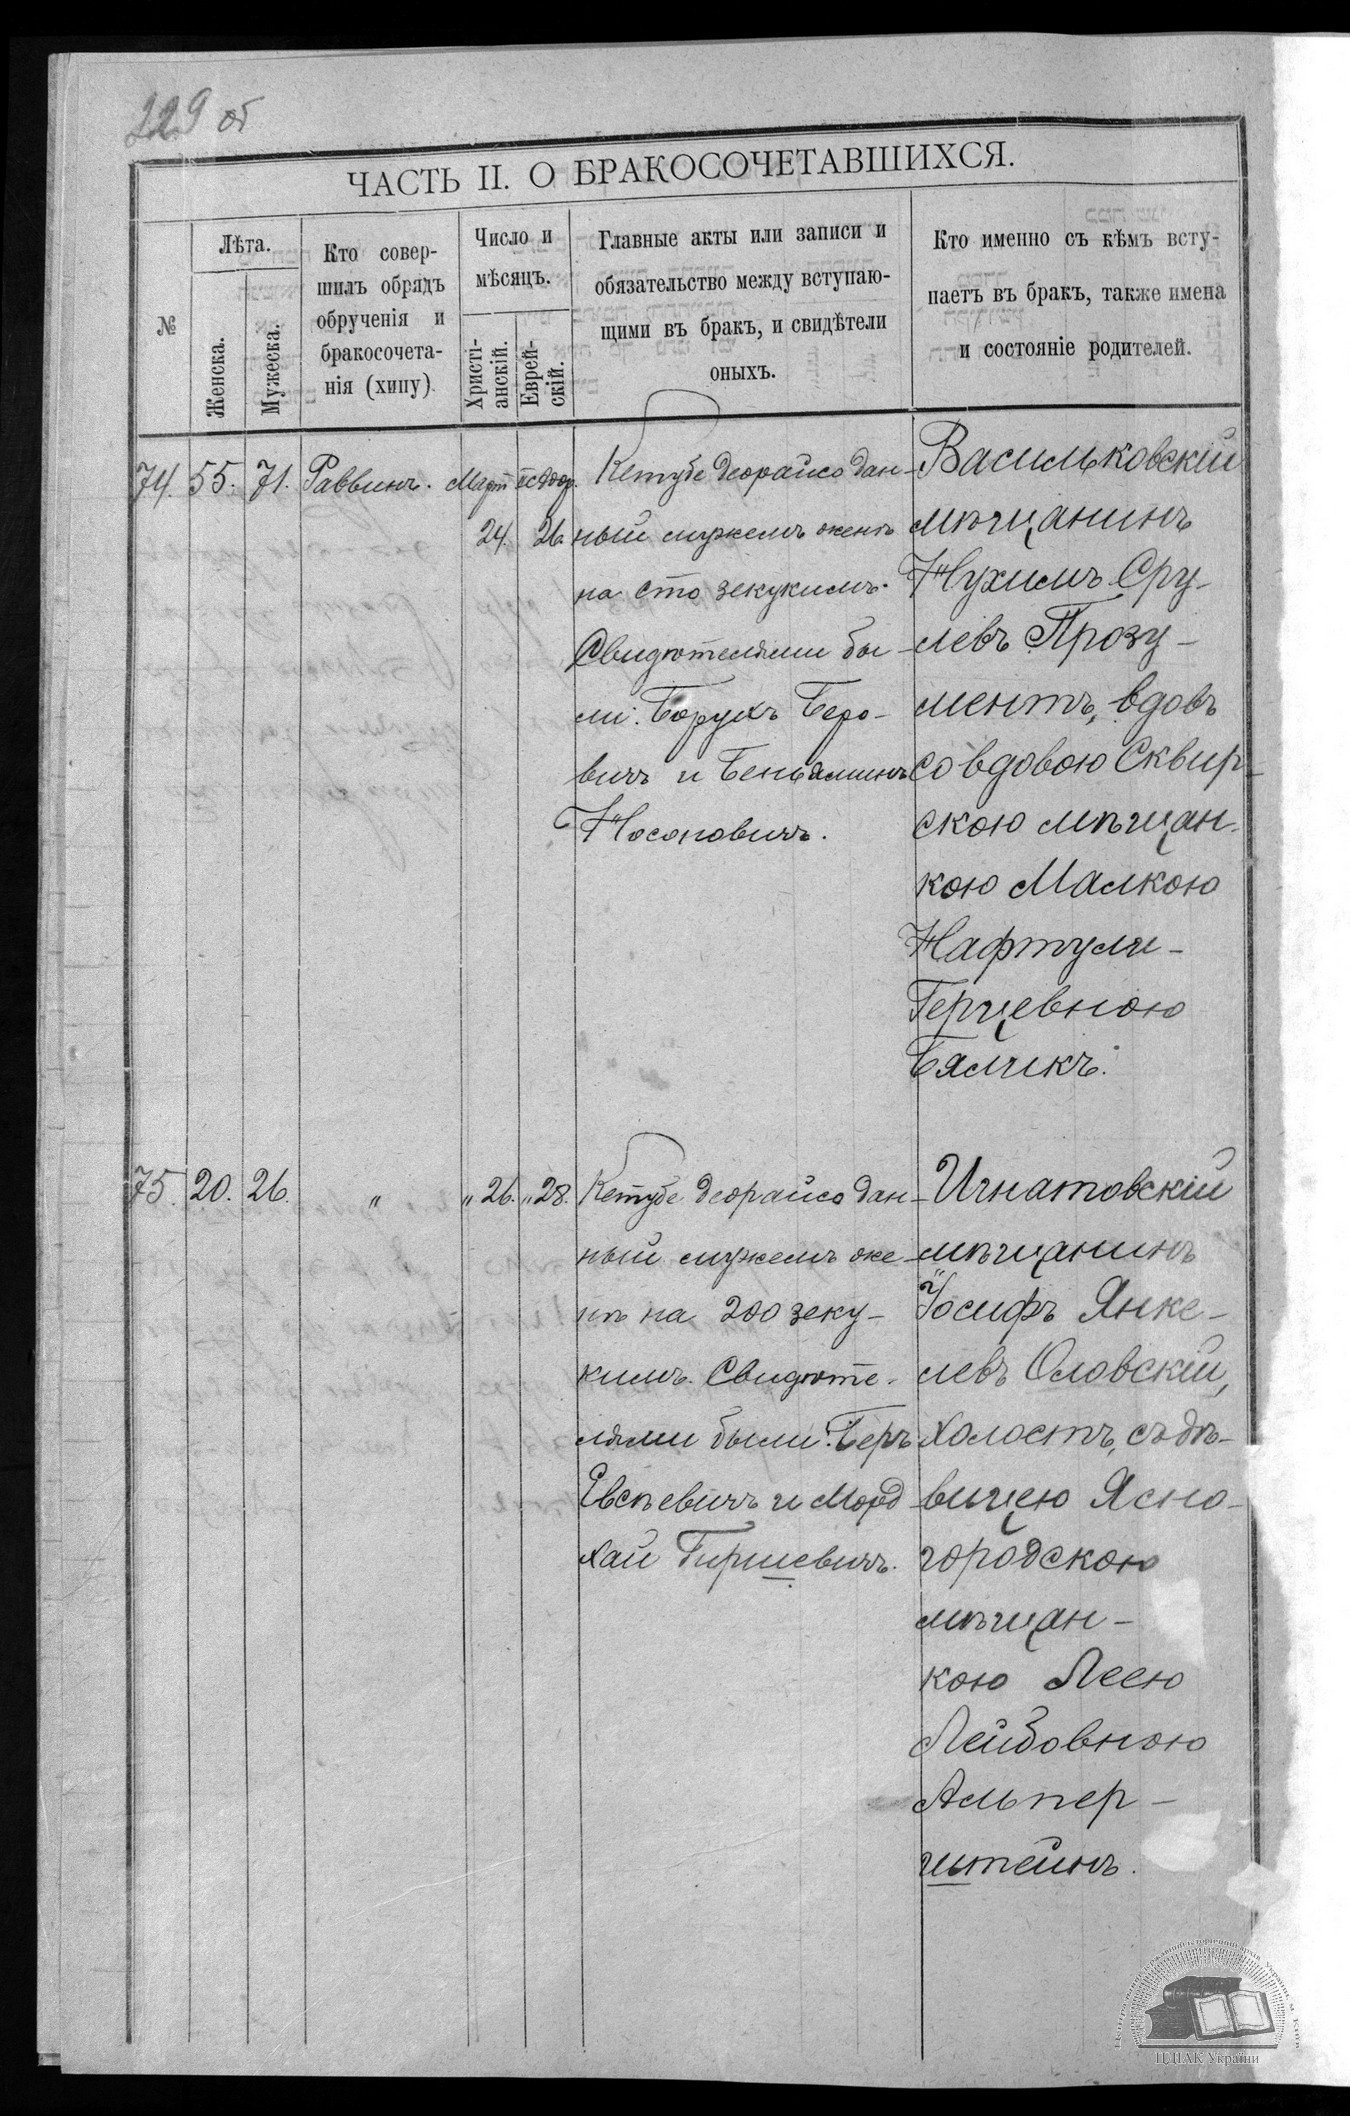 229 об
ЧАСТЬ II. О БРАКОСОЧЕТАВШИХСЯ.
№
Лѣта.
Женска.
Мужеска.
Кто совер-
шилъ обрядъ
обрученія и
бракосочета-
нія (хипу)
Число и
мѣсяцъ.
Христі-
анскій.
Еврей-
скій.
Главные акты или записи и
обязательство между вступаю-
щими въ бракъ, и свидѣтели
оныхъ.
Кто именно съ кѣмъ всту-
паетъ въ бракъ, также имена
и состояніе родителей.
74. 55. 71. Раввинъ. Март
24. 26.
Кетубе деорайсо дан-
ный мужемъ женѣ
на сто зекукимъ.
Свидѣтелями бы-
ли: Борухъ Беро-
вичъ и Беньяминъ
Носоновичъ.
Васильковскій
мѣщанинъ
Нухимъ Сру-
левъ Прозу-
ментъ, вдовъ
со вдовою Сквир-
скою мѣщан-
кою Малкою
Нафтули-
Герцевною
Бяликъ.
75. 20. 26. " " 26. " 28.
Кетубе деорайсо дан-
ный мужемъ же-
нѣ на 200 зеку-
кимъ. Свидѣте-
лями были: Беръ
Евсѣевичъ и Морд
хай Гиршевичъ.
Игнатовскій
мѣщанинъ
Іосифъ Янке-
левъ Оловскій,
холостъ, съ дѣ-
вицею Ясно-
городскою
мѣщан-
кою Леею
Лейбовною
Альпер-
штейнъ.
ЦДІАК України